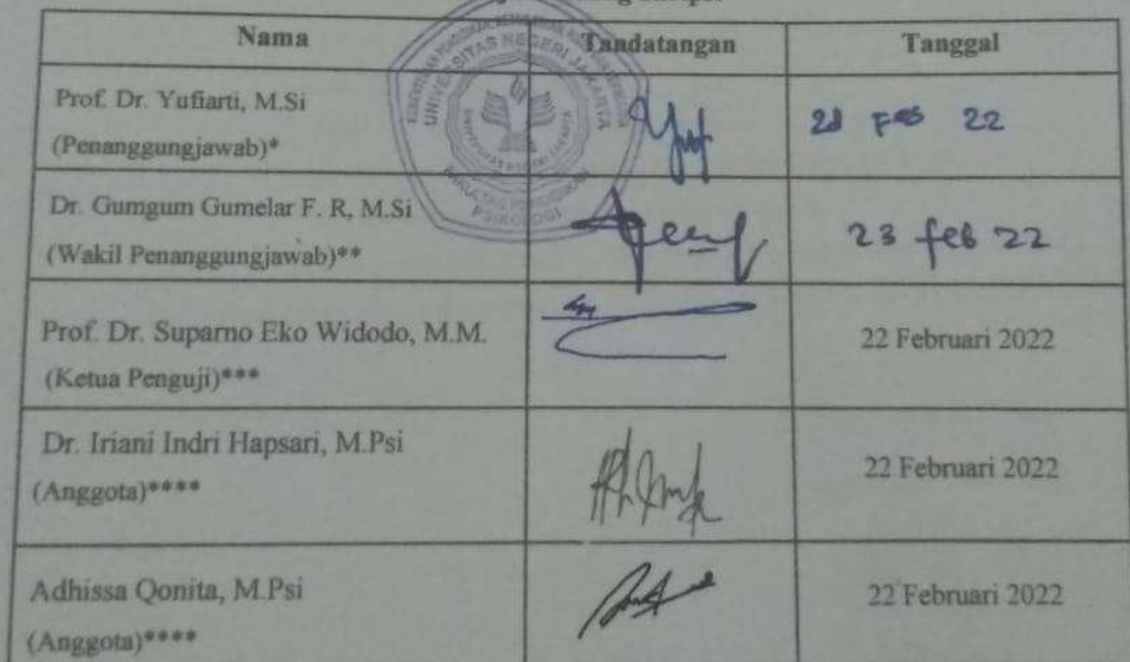 Nama Tandatangan Tanggal
Prof. Dr. Yufiarti, M.Si
(Penanggungjawab)*
22
Dr. Gumgum Gumelar F. R, M.Si
(Wakil Penanggungjawab)**
23 feb 22
Prof. Dr. Suparno Eko Widodo, M.M.
(Ketua Penguji)***
22 Februari 2022
Dr. Iriani Indri Hapsari, M.Psi
(Anggota)****
22 Februari 2022
Adhissa Qonita, M.Psi
(Anggota)****
22 Februari 2022
UNIVERSITAS NEGERI JAKARTA
PSIKOLOGI